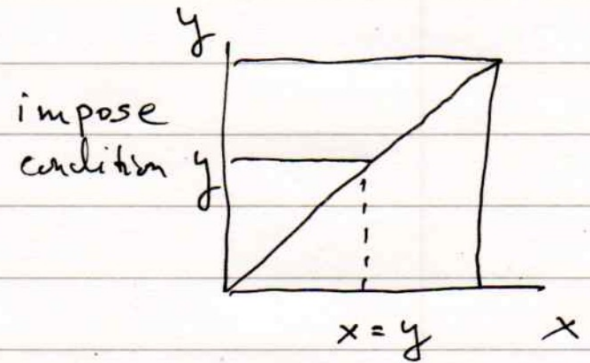 y
impose
condition y
x = y
x